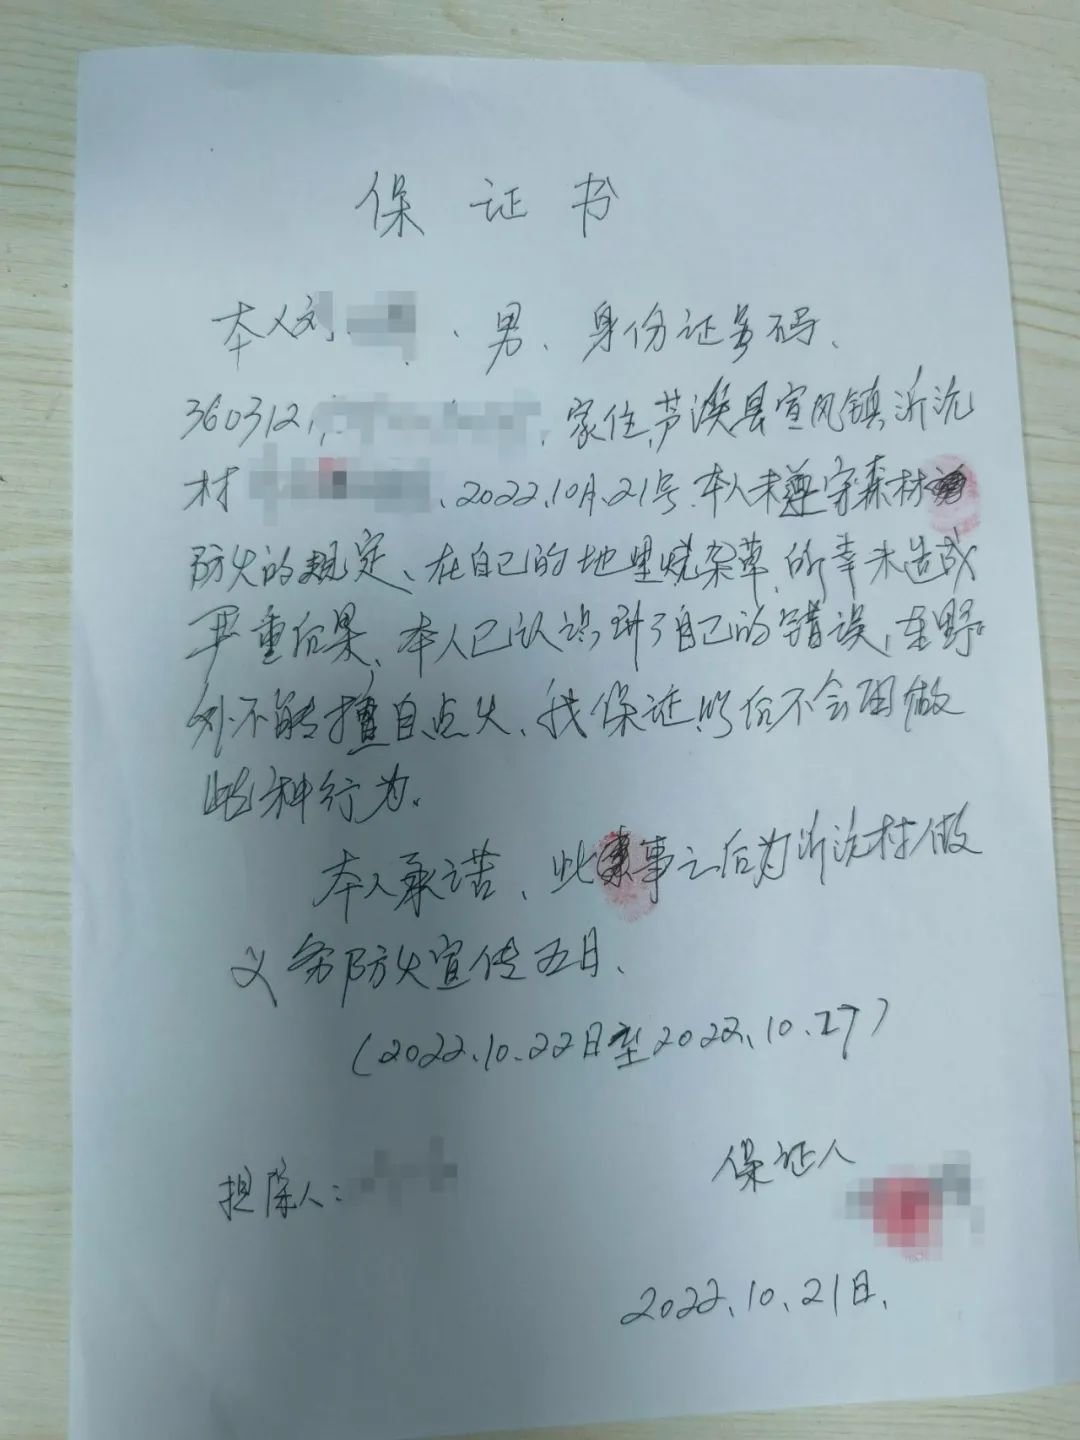 保证书
本人刘 、男、身份证号码、
360312 ,家住,芦溪县宣风镇沂沅
村 、2022.10月.21号.本人未遵守森林
防火的规定、在自己的地里烧杂草,所幸未造成
严重后果、本人已认识到了自己的错误,在野
外不能擅自点火、我保证以后不会因做
此种行为.
本人承诺、此事之后为沂沅村做
义务防火宣传五日、
(2022.10.22日至2022.10.27)
担保人:
保证人
2022.10.21日.